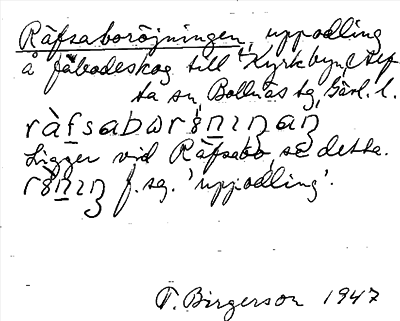 Räfsaboröjningen, uppodling
å fäbodeskog till Kyrkbyn, Ref
ta sn, Bollnäs tg, Gävl. l.
Ligger vid Räfsabo, se detta.
f. sg. 'uppodling'.
T. Birgerson 1947